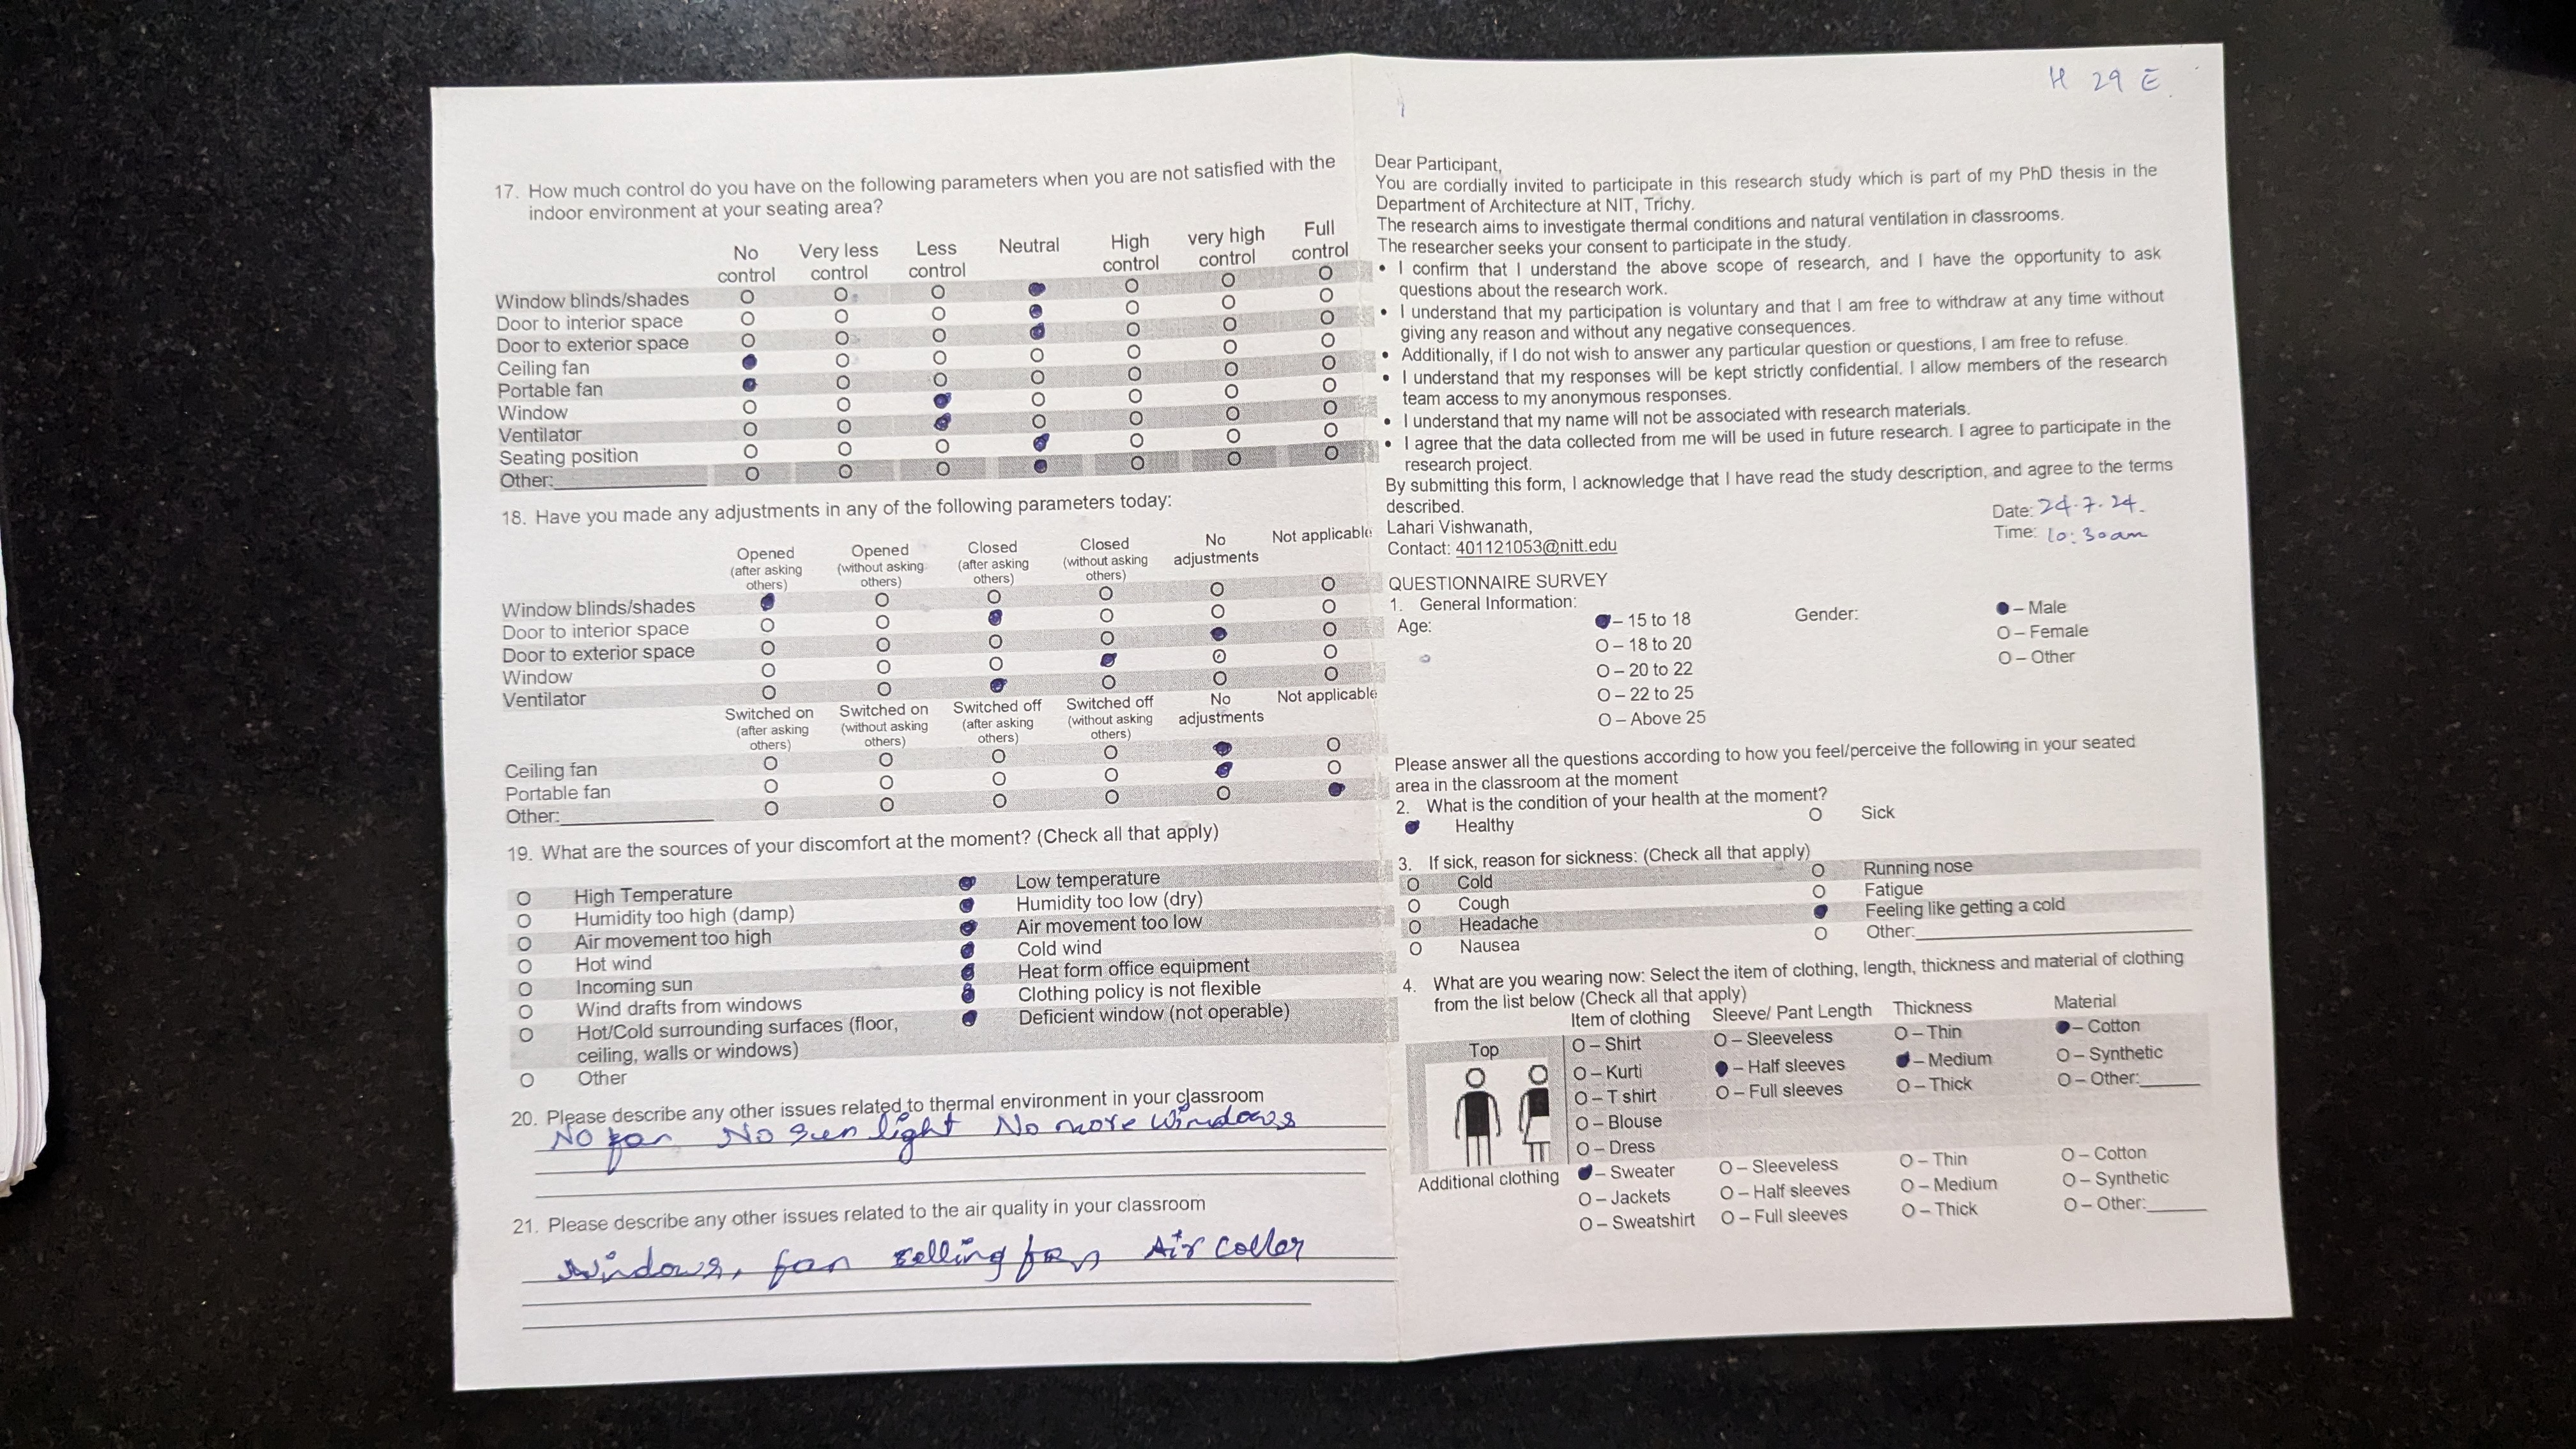 17. How much control do you have on the following parameters when you are not satisfied with the
indoor environment at your seating area?
No control Very less control Less control Neutral High control very high control Full control
Window blinds/shades O O O ● O O O
Door to interior space O O O ● O O O
Door to exterior space O O O ● O O O
Ceiling fan ● O O O O O O
Portable fan ● O O O O O O
Window O O ● O O O O
Ventilator O O ● O O O O
Seating position O O O ● O O O
Other: O O O ● O O O
18. Have you made any adjustments in any of the following parameters today:
Opened (after asking others) Opened (without asking others) Closed (after asking others) Closed (without asking others) No adjustments Not applicable
Window blinds/shades ● O O O O O
Door to interior space O O ● O O O
Door to exterior space O O O O ● O
Window O O O ● O O
Ventilator O O ● O O O
Switched on (after asking others) Switched on (without asking others) Switched off (after asking others) Switched off (without asking others) No adjustments Not applicable
Ceiling fan O O O O ● O
Portable fan O O O O ● O
Other: O O O O O ●
19. What are the sources of your discomfort at the moment? (Check all that apply)
O High Temperature ● Low temperature
O Humidity too high (damp) ● Humidity too low (dry)
O Air movement too high ● Air movement too low
O Hot wind ● Cold wind
O Incoming sun ● Heat form office equipment
O Wind drafts from windows ● Clothing policy is not flexible
O Hot/Cold surrounding surfaces (floor, ● Deficient window (not operable)
ceiling, walls or windows)
O Other
20. Please describe any other issues related to thermal environment in your classroom
No fan No sun light No more windows
21. Please describe any other issues related to the air quality in your classroom
Windows, fan selling fan Air coller
H 29 E
Dear Participant,
You are cordially invited to participate in this research study which is part of my PhD thesis in the
Department of Architecture at NIT, Trichy.
The research aims to investigate thermal conditions and natural ventilation in classrooms.
The researcher seeks your consent to participate in the study.
• I confirm that I understand the above scope of research, and I have the opportunity to ask
questions about the research work.
• I understand that my participation is voluntary and that I am free to withdraw at any time without
giving any reason and without any negative consequences.
• Additionally, if I do not wish to answer any particular question or questions, I am free to refuse.
• I understand that my responses will be kept strictly confidential. I allow members of the research
team access to my anonymous responses.
• I understand that my name will not be associated with research materials.
• I agree that the data collected from me will be used in future research. I agree to participate in the
research project.
By submitting this form, I acknowledge that I have read the study description, and agree to the terms
described.
Lahari Vishwanath,
Contact: 401121053@nitt.edu
Date: 24.7.24.
Time: 10:30am
QUESTIONNAIRE SURVEY
1. General Information:
Age: ● – 15 to 18 Gender: ● – Male
O – 18 to 20 O – Female
O – 20 to 22 O – Other
O – 22 to 25
O – Above 25
Please answer all the questions according to how you feel/perceive the following in your seated
area in the classroom at the moment
2. What is the condition of your health at the moment?
● Healthy O Sick
3. If sick, reason for sickness: (Check all that apply)
O Cold O Running nose
O Cough O Fatigue
O Headache ● Feeling like getting a cold
O Nausea O Other:
4. What are you wearing now: Select the item of clothing, length, thickness and material of clothing
from the list below (Check all that apply)
Item of clothing Sleeve/ Pant Length Thickness Material
Top O – Shirt O – Sleeveless O – Thin ● – Cotton
O – Kurti ● – Half sleeves ● – Medium O – Synthetic
O – T shirt O – Full sleeves O – Thick O – Other:
O – Blouse
O – Dress
Additional clothing ● – Sweater O – Sleeveless O – Thin O – Cotton
O – Jackets O – Half sleeves O – Medium O – Synthetic
O – Sweatshirt O – Full sleeves O – Thick O – Other: